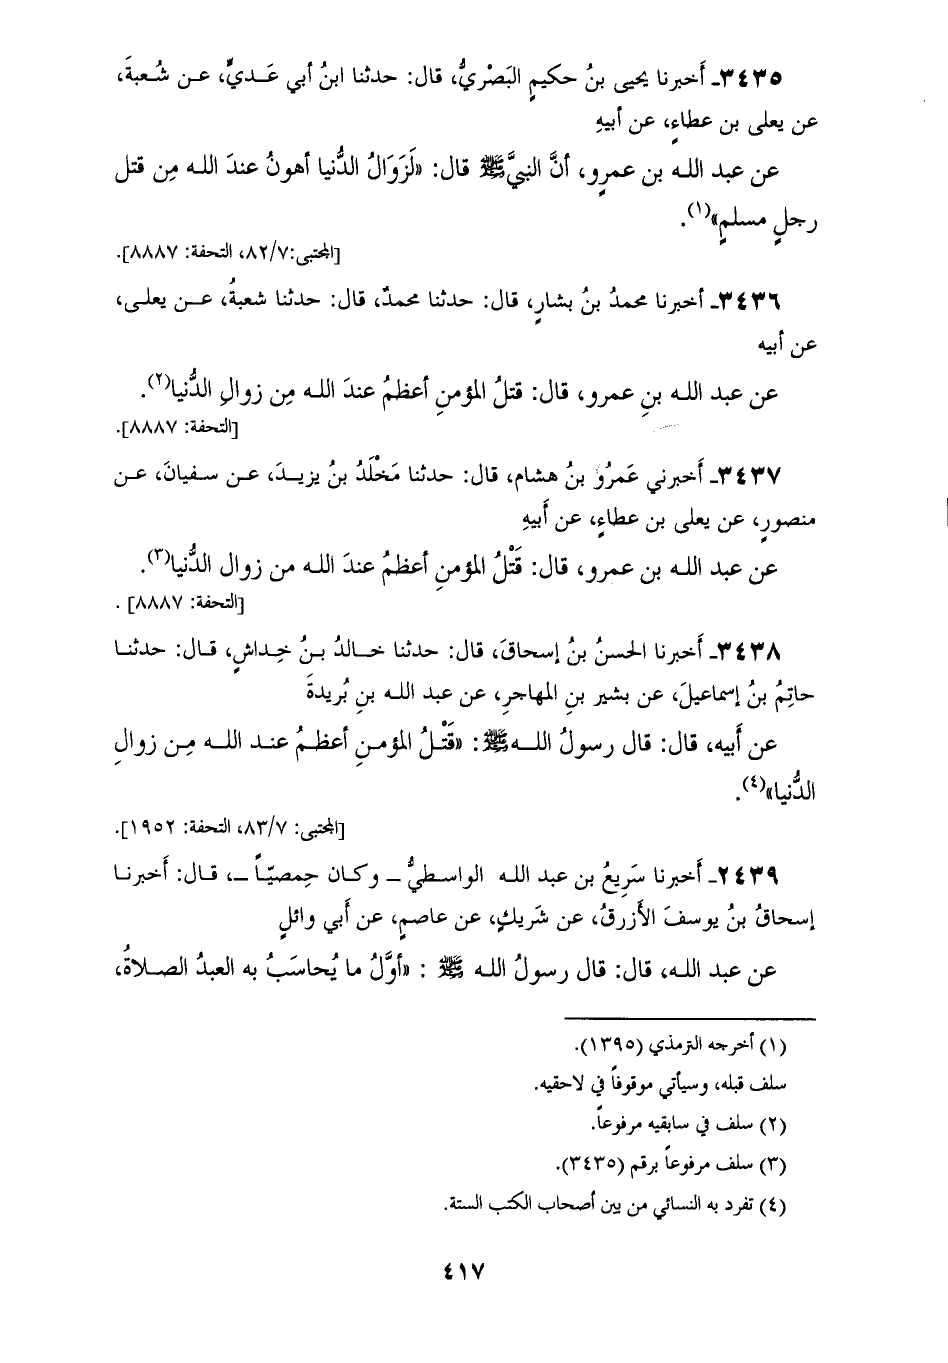 ٣٤٣٥ـ أَخبرنا يحيى بنُ حكيمٍ البَصْريُّ، قال: حدثنا ابنُ أبي عَـديٍّ، عـن شُـعبةَ،
عن يعلى بن عطاءٍ، عن أبيهِ
عن عبد اللـه بن عمرٍو، أنَّ النبيَّ ﷺ قال: «لَزَوَالُ الدُّنيا أهونُ عندَ اللـه مِن قتل
رجلٍ مسلمٍ»(١).
[المجتبى:٨٢/٧، التحفة: ٨٨٨٧].
٣٤٣٦ـ أخبرنا محمدُ بنُ بشارٍ، قال: حدثنا محمدٌ، قال: حدثنا شعبةُ، عـن يعلـى،
عن أبيه
عن عبد اللـه بنِ عمرو، قال: قتلُ المؤمنِ أعظمُ عندَ اللـه مِن زوالِ الدُّنيا(٢).
[التحفة: ٨٨٨٧].
٣٤٣٧ـ أَخبرني عَمرُو بنُ هشام، قال: حدثنا مَخْلَدُ بنُ يزيـدَ، عـن سـفيانَ، عـن
منصورٍ، عن يعلى بن عطاءٍ، عن أَبيهِ
عن عبد اللـه بن عمرو، قال: قَتْلُ المؤمنِ أعظمُ عندَ اللـه من زوال الدُّنيا(٣).
[التحفة: ٨٨٨٧] .
٣٤٣٨ـ أَخبرنا الحسنُ بنُ إسحاقَ، قال: حدثنا خـالدُ بـنُ خِـداشٍ، قـال: حدثنـا
حاتِمُ بنُ إسماعيلَ، عن بشير بنِ المهاجرِ، عن عبد اللـه بنِ بُريدةَ
عن أَبيه، قال: قال رسولُ اللـه ﷺ: «قَتْـلُ المؤمـنِ أعظـمُ عنـد اللـه مِـن زوالِ
الدُّنيا»(٤).
[المجتبى: ٨٣/٧، التحفة: ١٩٥٢].
٢٤٣٩ـ أَخبرنا سَرِيعُ بن عبد اللـه الواسـطيُّ ـ وكـان حِمصيّـاً ـ، قـال: أَخبرنـا
إسحاقُ بنُ يوسفَ الأَزرقُ، عن شَريكٍ، عن عاصمٍ، عن أَبي وائلٍ
عن عبد اللـه، قال: قال رسولُ اللـه ﷺ : «أوَّلُ ما يُحاسَبُ به العبدُ الصـلاةُ،
(١) أخرجه الترمذي (١٣٩٥).
سلف قبله، وسيأتي موقوفاً في لاحقيه.
(٢) سلف في سابقيه مرفوعاً.
(٣) سلف مرفوعاً برقم (٣٤٣٥).
(٤) تفرد به النسائي من بين أصحاب الكتب الستة.
٤١٧